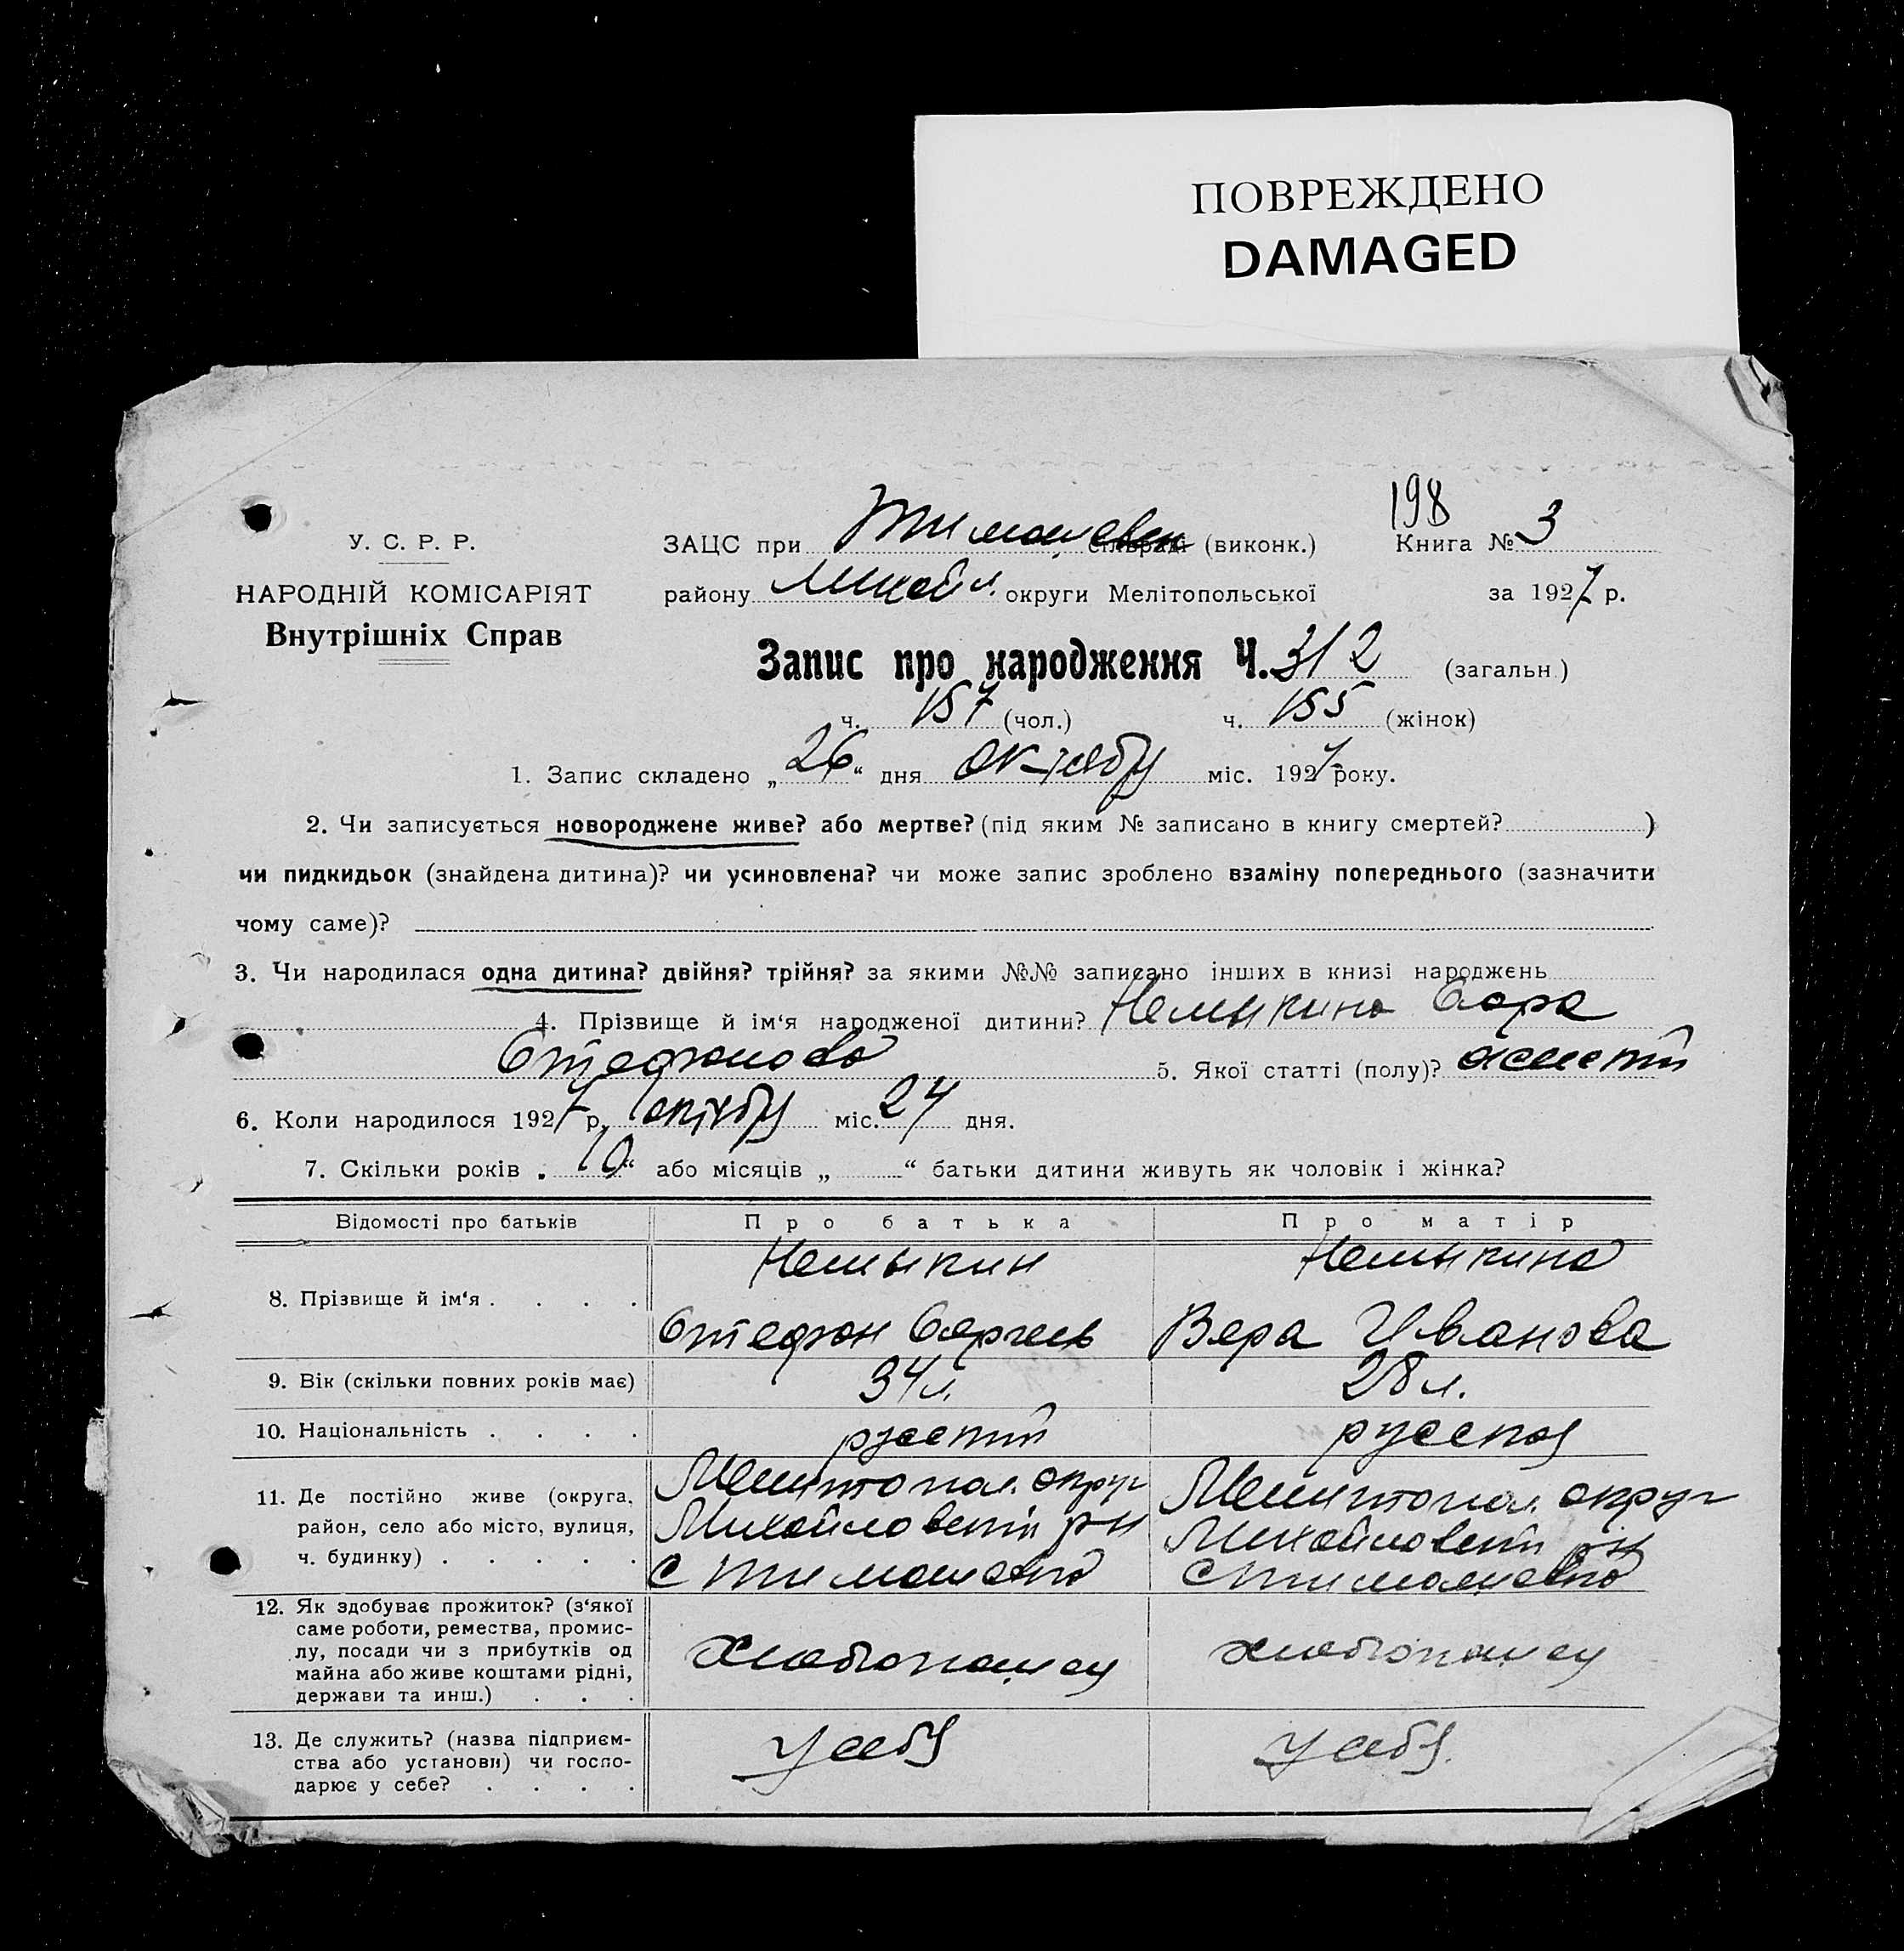 ПОВРЕЖДЕНО
DAMAGED
198
У. С. Р. Р.
ЗАЦС при Тимошевск сільраді (виконк.) Книга № 3
НАРОДНІЙ КОМІСАРІЯТ
району Михайл. округи Мелітопольської за 1927 р.
Внутрішніх Справ
Запис про народження Ч. 312 (загальн.)
ч. 157 (чол.) ч. 155 (жінок)
1. Запис складено „26“ дня октябр міс. 1927 року.
2. Чи записується новороджене живе? або мертве? (під яким № записано в книгу смертей? )
чи пидкидьок (знайдена дитина)? чи усиновлена? чи може запис зроблено взаміну попереднього (зазначити
чому саме)?
3. Чи народилася одна дитина? двійня? трійня? за якими №№ записано інших в книзі народжень
4. Прізвище й ім‘я народженої дитини? Немыкина
Стефанова 5. Якої статті (полу)? женский
6. Коли народилося 1927 р. октябр міс. 24 дня.
7. Скільки років „10“ або місяців „ “ батьки дитини живуть як чоловік і жінка?
Відомості про батьків Про батька Про матір
Немыкин Немыкина
8. Прізвище й ім‘я . . . .
Стефан Сергеев Вера Иванова
9. Вік (скільки повних років має) 34 л. 28 л.
10. Національність . . . . русский русская
11. Де постійно живе (округа, Мелитопол. округ Мелитопол. округ
район, село або місто, вулиця, Михайловский рн Михайловский рн
ч. будинку) . . . . . с Тимошевка с Тимошевка
12. Як здобуває прожиток? (з‘якої
саме роботи, ремества, промис-
лу, посади чи з прибутків од хлебопашец хлебопашец
майна або живе коштами рідні,
держави та инш.) . . .
13. Де служить? (назва підприєм-
ства або установи) чи госпо- у себя у себя.
дарює у себе? . . . .